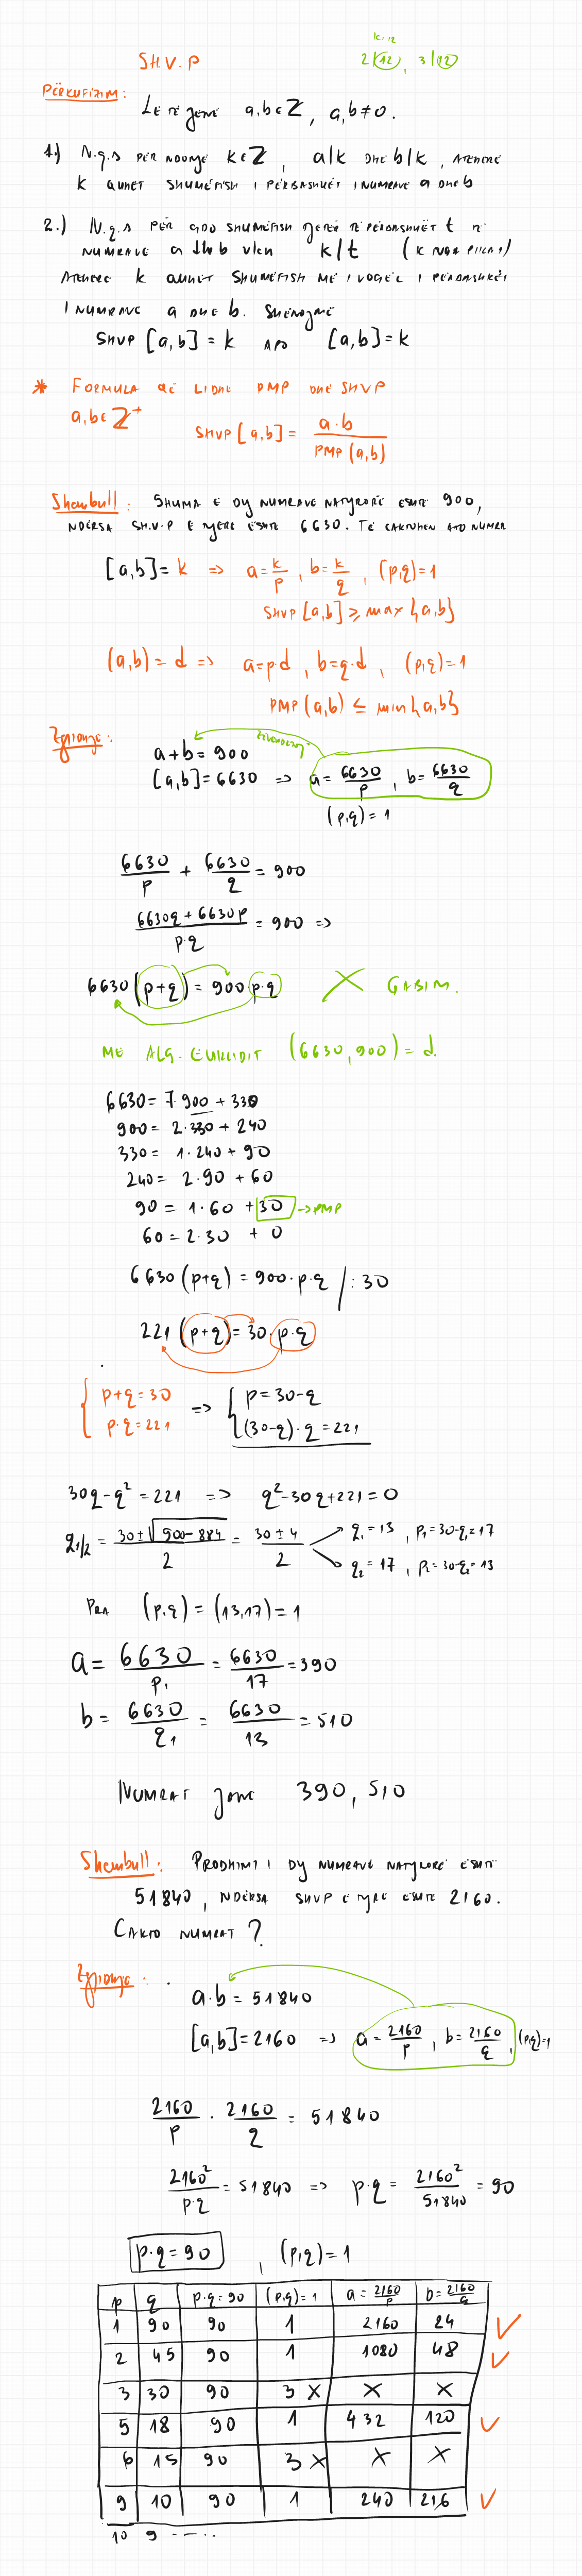 SH.V.P
k=12
2|12, 3|12
PËRKUFIZIM:
LE TË JENË a,b∈Z, a,b≠0.
1.) N.q.s PËR NDONJË k∈Z, a|k DHE b|k, ATËHERË
k QUHET SHUMËFISH I PËRBASHKËT I NUMRAVE a DHE b
2.) N.q.s PËR ÇDO SHUMËFISH TJETËR TË PËRBASHKËT t TË
NUMRAVE a DHE b VLEN k|t (k NGA PIKA 1)
ATËHERË k QUHET SHUMËFISH MË I VOGËL I PËRBASHKËT
I NUMRAVE a DHE b. SHËNOJMË
SHVP [a,b] = k APO [a,b] = k
* FORMULA QË LIDHË PMP DHE SHVP
a,b∈Z+ SHVP[a,b] = a·b / PMP(a,b)
Shembull: SHUMA E DY NUMRAVE NATYRORË ËSHTË 900,
NDËRSA SH.V.P E TYRE ËSHTË 6630. TË CAKTOHEN ATO NUMRA
[a,b] = k => a = k/p, b = k/q, (p,q) = 1
SHVP [a,b] ≥ max{a,b}
(a,b) = d => a = p·d, b = q·d, (p,q) = 1
PMP(a,b) ≤ min{a,b}
Zgjidhje:
a+b = 900
[a,b] = 6630 => a = 6630/p, b = 6630/q
(p,q) = 1
6630/p + 6630/q = 900
6630q + 6630p / p·q = 900 =>
6630(p+q) = 900·p·q X GABIM.
ME ALG. EUKLIDIT (6630,900) = d.
6630 = 7·900 + 330
900 = 2·330 + 240
330 = 1·240 + 90
240 = 2·90 + 60
90 = 1·60 + 30 → PMP
60 = 2·30 + 0
6630(p+q) = 900·p·q /:30
221(p+q) = 30·p·q
{ p+q = 30 => { p = 30-q
p·q = 221 (30-q)·q = 221
30q - q² = 221 => q² - 30q + 221 = 0
q1/2 = 30 ± √900-884 / 2 = 30 ± 4 / 2
q₁ = 13, p₁ = 30-q₁ = 17
q₂ = 17, p₂ = 30-q₂ = 13
PRA (p,q) = (13,17) = 1
a = 6630/p₁ = 6630/17 = 390
b = 6630/q₁ = 6630/13 = 510
NUMRAT janë 390, 510
Shembull: PRODHIMI I DY NUMRAVE NATYRORË ËSHTË
51840, NDËRSA SHVP E TYRE ËSHTË 2160.
CAKTO NUMRAT?
Zgjidhje:
a·b = 51840
[a,b] = 2160 => a = 2160/p, b = 2160/q, (p,q)=1
2160/p · 2160/q = 51840
2160²/p·q = 51840 => p·q = 2160²/51840 = 90
p·q = 90, (p,q) = 1
p q p·q=90 (p,q)=1 a=2160/p b=2160/q
1 90 90 1 2160 24 ✓
2 45 90 1 1080 48 ✓
3 30 90 3 X X X
5 18 90 1 432 120 ✓
6 15 90 3 X X X
9 10 90 1 240 216 ✓
10 9 .....